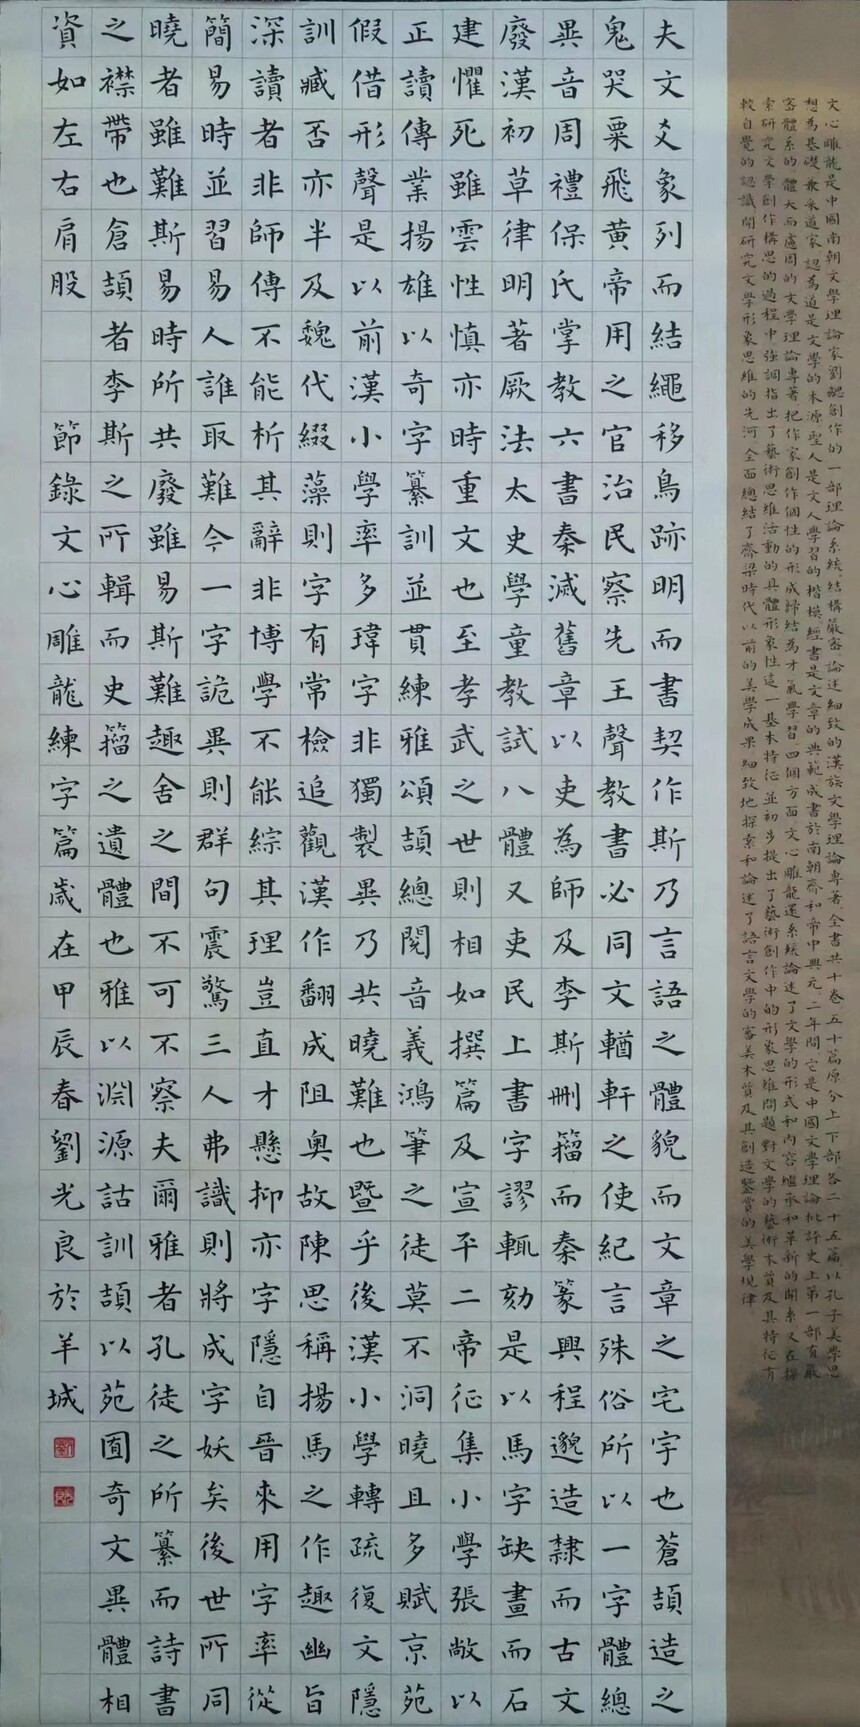 文心雕龍是中國南朝文學理論家劉勰創作的一部理論系統結構嚴密論述細致的漢族文學理論專著全書共十卷五十篇原分上下部各二十五篇以孔子美學思
想為基礎兼采道家認為道是文學的本源聖人是文人學習的楷模經書是文章的典範成書於南朝齊和帝中興元二年間它是中國文學理論批評史上第一部有嚴
密體系的體大而慮周的文學理論專著把作家創作個性的形成歸結為才氣學習四個方面文心雕龍還系統論述了文學的形式和內容繼承和革新的關系又在探
索研究文學創作構思的過程中強調指出了藝術思維活動的具體形象性這一基本特征並初步提出了藝術創作中的形象思維問題對文學的藝術本質及其特征有
較自覺的認識開研究文學形象思維的先河全面總結了齊梁時代以前的美學成果細致地探索和論述了語言文學的審美本質及其創造鑒賞的美學規律
夫文爻象列而結繩移鳥跡明而書契作斯乃言語之體貌而文章之宅字也蒼頡造之
鬼哭粟飛黃帝用之官治民察先王聲教書必同文輶軒之使紀言殊俗所以一字體總
異音周禮保氏掌教六書秦滅舊章以吏為師及李斯刪籀而秦篆興程邈造隸而古文
廢漢初草律明著厥法太史學童教試八體又吏民上書字謬輒劾是以馬字缺畫而石
建懼死雖雲性慎亦時重文也至孝武之世則相如撰篇及宣平二帝征集小學張敞以
正讀傳業揚雄以奇字纂訓並貫練雅頌頡總閱音義鴻筆之徒莫不洞曉且多賦京苑
假借形聲是以前漢小學率多瑋字非獨製異乃共曉難也暨乎後漢小學轉疏復文隱
訓臧否亦半及魏代綴藻則字有常檢追觀漢作翻成阻奧故陳思稱揚馬之作趣幽旨
深讀者非師傳不能析其辭非博學不能綜其理豈直才懸抑亦字隱自晉來用字率從
簡易時並習易人誰取難今一字詭異則群句震驚三人弗識則將成字妖矣後世所同
曉者雖難斯易時所共廢雖易斯難趣舍之間不可不察夫爾雅者孔徒之所纂而詩書
之襟帶也倉頡者李斯之所輯而史籀之遺體也雅以淵源詁訓頡以苑囿奇文異體相
資如左右肩股 節錄文心雕龍練字篇歲在甲辰春劉光良於羊城